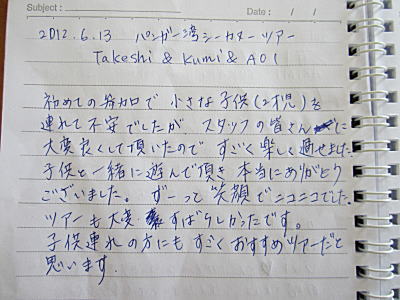 Subject :
Date : / /
2012.6.13 パンガー湾シーカヌーツアー
Takeshi & Kumi & AOI
初めての参加で 小さな子供(2才児)を
連れて不安でしたが、スタッフの皆さんに
大変良くして頂いたので すごく楽しく過せました。
子供と一緒に遊んで頂き 本当にありがとう
ございました。 ずーっと 笑顔でニコニコでした。
ツアーも大変 すばらしかったです。
子供連れの方にも すごく おすすめツアーだと
思います.